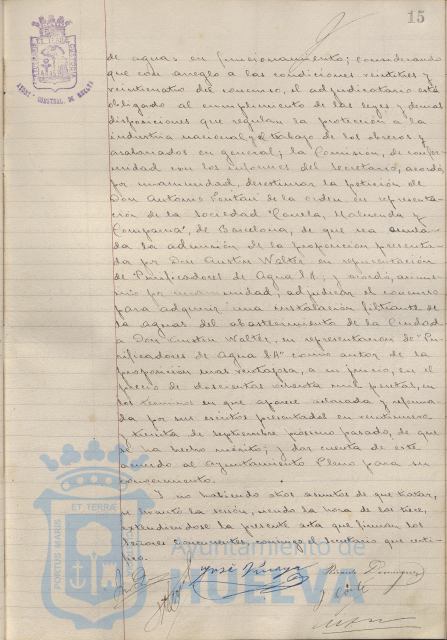 15
de aguas en funcionamiento; considerando
que con arreglo a las condiciones veintitres y
veinticuatro del concurso, el adjudicatario está
obligado al cumplimiento de las leyes y demas
disposiciones que regulan la protección a la
industria nacional y el trabajo de los obreros y
asalariados en general; la Comisión, de confor-
midad con los informes del Secretario, acordó,
por unanimidad, desestimar la petición de
Don Antonio de la Orden en representa-
ción de la Sociedad Maluenda y
Compañia", de Barcelona, de que sea anula-
da la admisión de la proposición presenta-
da por Don Austin Walter en representación
de Purificadores de Agua S.A.; y acordó, asimis-
mo por unanimidad, adjudicar el concurso
para adquirir una instalación filtrante de
las aguas del abastecimiento de la Ciudad
a Don Austin Walter, en representación de "Pu-
rificadores de Agua S.A." como autor de la
proposición mas ventajosa, a su juicio, en el
precio de doscientas ochenta mil pesetas, en
los terminos en que aparece aclarada y reforma-
da por sus escritos presentados en veintinueve
y treinta de septiembre proximo pasado, de que
se ha hecho mérito; y dar cuenta de este
acuerdo al Ayuntamiento Pleno para su
conocimiento.
Y no habiendo otros asuntos de que tratar,
se levantó la sesión, siendo la hora de las trece,
extendiendose la presente acta que firman los
Señores concurrentes, conmigo el Secretario que certi-
fico.
José
Ricardo Dominguez
PORTUS MARIS ET TERRAE
Ayuntamiento de
HUELVA